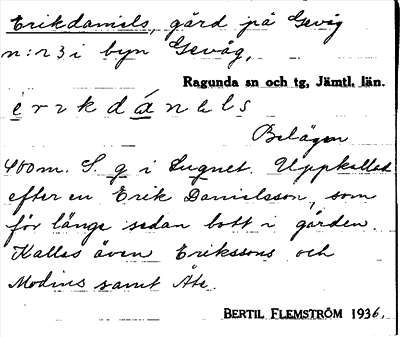 Erikdaniels, gård på Gevåg
n:r 3 i byn Gevåg,
Ragunda sn och tg, Jämtl. län.
Belägen
400 m. S. g i Lugnet. Uppkallad
efter en Erik Danielsson, som
för länge sedan bott i gården.
Kallas även Erikssons och
Modins samt Åte.
BERTIL FLEMSTRÖM 1936.